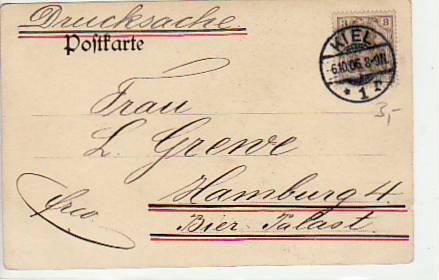 Drucksache.
Postkarte
3 3
KIEL
6.10.06. 8-9N.
* 1 r
3,-
Frau
L. Grewe
Hamburg 4.
frco.
Bier-Palast.